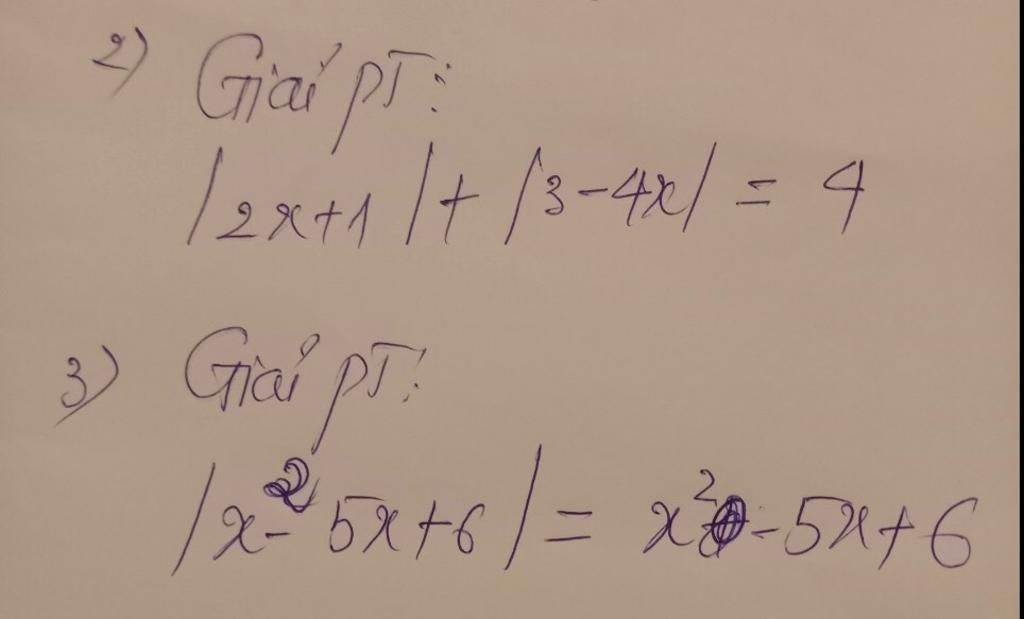 2) Giải pT:
|2x+1|+|3-4x| = 4
3) Giải pT:
|x²-5x+6| = x²-5x+6